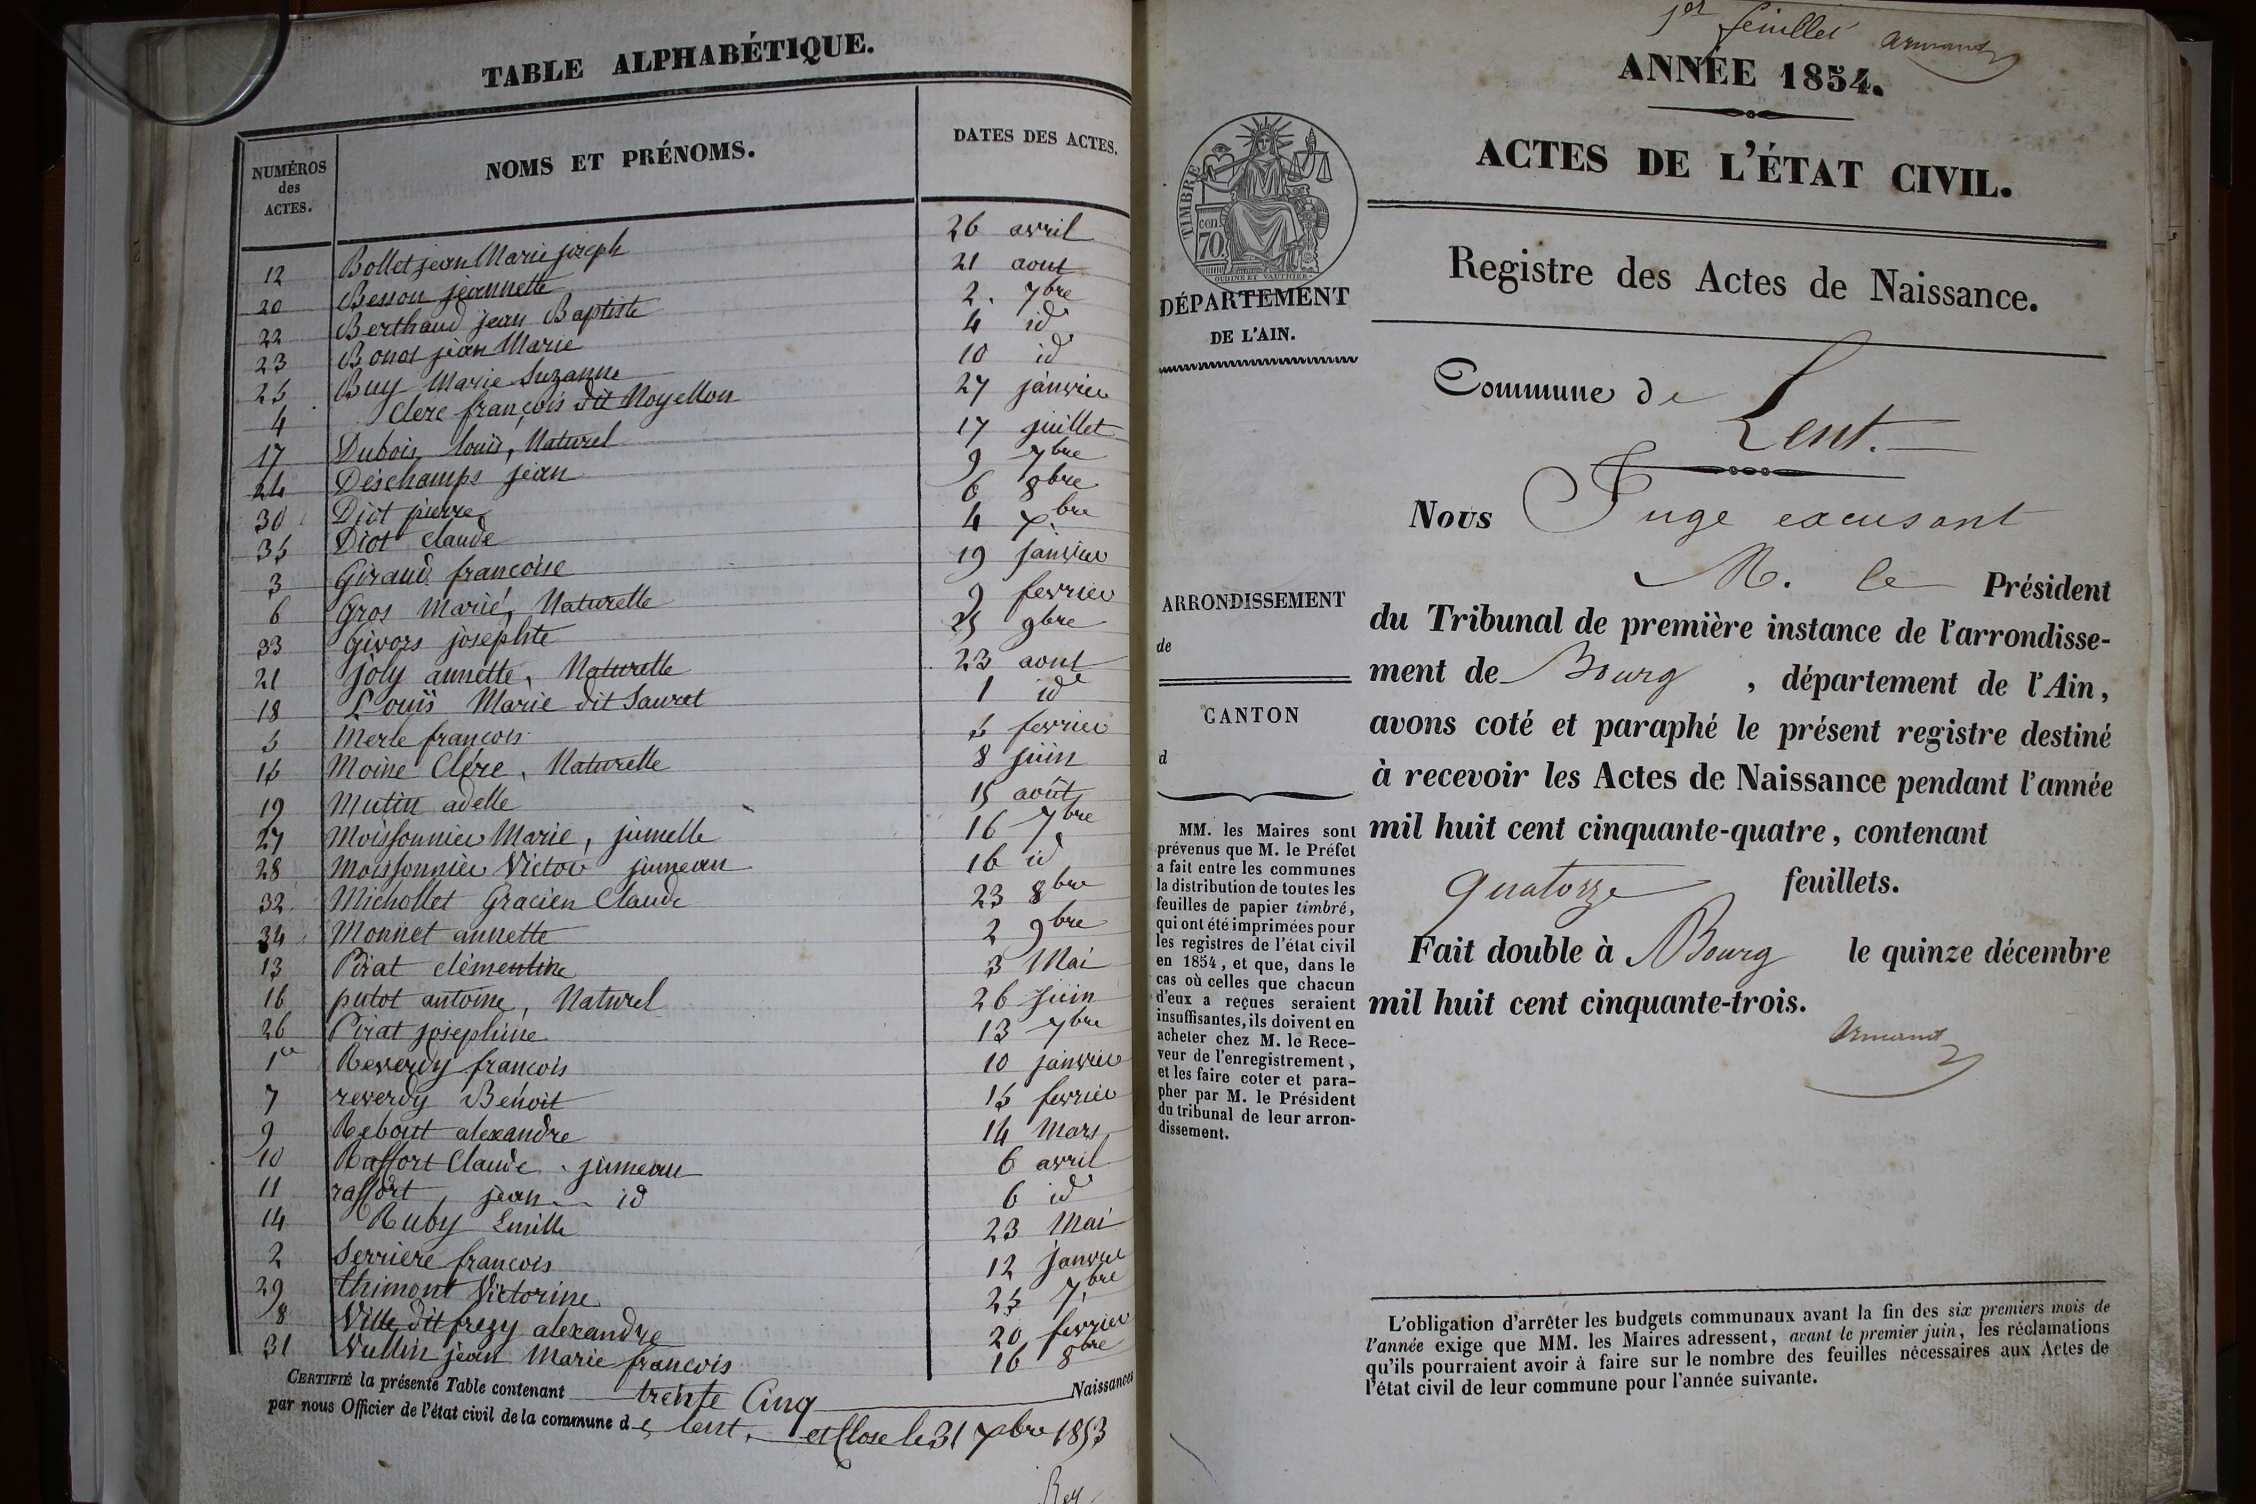 TABLE ALPHABÉTIQUE.
NUMÉROS des ACTES.
NOMS ET PRÉNOMS.
DATES DES ACTES.
12 Bollet jean Marie joseph 26 avril
20 Besson jeannette 21 aout
22 Berthaud jean Baptiste 2. 7bre
23 Bonot jean Marie 4 id
25 Buy Marie Suzanne 10 id
4 Clere françois dit Noyellon 27 janvier
17 Dubois, louis, Naturel 17 juillet
24 Deschamps jean 9 7bre
30 Diot pierre 6 8bre
35 Diot claude 4 xbre
3 Giraud francoise 19 janvier
6 Gros Marie, Naturelle 9 fevrier
33 Givors josephte 25 9bre
21 joly annette, Naturelle 23 aout
18 Louis Marie dit Sauret 1 id
5 Merle francois 5 fevrier
15 Moine Clère, Naturelle 8 juin
19 Mutin adelle 15 août
27 Moissonnier Marie, jumelle 16 7bre
28 Moissonnier Victor jumeau 16 id
32 Michollet Gracien Claude 23 8bre
34 Monnet annette 2 9bre
13 Pirat clémentine 3 Mai
16 putot antoine, Naturel 26 Juin
26 Pirat josephine 13 7bre
1er Reverdy francois 10 janvier
7 reverdy Benoit 15 fevrier
9 Rebout alexandre 14 Mars
10 Raffort Claude jumeau 6 avril
11 raffort, jean id 6 id
14 Ruby Emille 23 Mai
2 Serriere francois 12 janvier
29 thimont Victorine 25 7bre
8 Ville dit frezy alexandre 20 fevrier
31 Vullin jean Marie francois 16 8bre
CERTIFIÉ la présente Table contenant trente Cinq Naissances
par nous Officier de l'état civil de la commune de lent, et Close le 31 xbre 1853
Rey
1er feuillet Armand
ANNÉE 1854.
ACTES DE L'ÉTAT CIVIL.
TIMBRE
cen. 70.
OUDINE ET VAUTHIER
DÉPARTEMENT
DE L'AIN.
Registre des Actes de Naissance.
Commune de Lent.
Nous Juge excusant
M. le Président
ARRONDISSEMENT
de
CANTON
d
du Tribunal de première instance de l'arrondisse-
ment de Bourg, département de l'Ain,
avons coté et paraphé le présent registre destiné
à recevoir les Actes de Naissance pendant l'année
mil huit cent cinquante-quatre, contenant
quatorze feuillets.
Fait double à Bourg le quinze décembre
mil huit cent cinquante-trois.
Armand
MM. les Maires sont
prévenus que M. le Préfet
a fait entre les communes
la distribution de toutes les
feuilles de papier timbré,
qui ont été imprimées pour
les registres de l'état civil
en 1854, et que, dans le
cas où celles que chacun
d'eux a reçues seraient
insuffisantes, ils doivent en
acheter chez M. le Rece-
veur de l'enregistrement,
et les faire coter et para-
pher par M. le Président
du tribunal de leur arron-
dissement.
L'obligation d'arrêter les budgets communaux avant la fin des six premiers mois de
l'année exige que MM. les Maires adressent, avant le premier juin, les réclamations
qu'ils pourraient avoir à faire sur le nombre des feuilles nécessaires aux Actes de
l'état civil de leur commune pour l'année suivante.